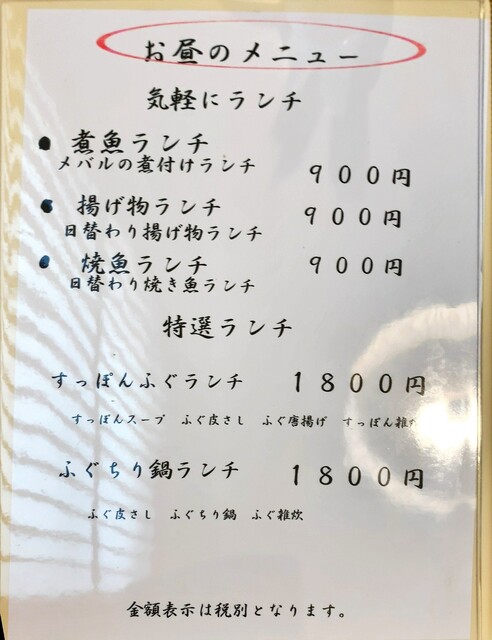 お昼のメニュー
気軽にランチ
● 煮魚ランチ
メバルの煮付けランチ
９００円
● 揚げ物ランチ
９００円
日替わり揚げ物ランチ
● 焼魚ランチ
９００円
日替わり焼き魚ランチ
特選ランチ
すっぽんふぐランチ １８００円
すっぽんスープ ふぐ皮さし ふぐ唐揚げ すっぽん雑
ふぐちり鍋ランチ １８００円
ふぐ皮さし ふぐちり鍋 ふぐ雑炊
金額表示は税別となります。